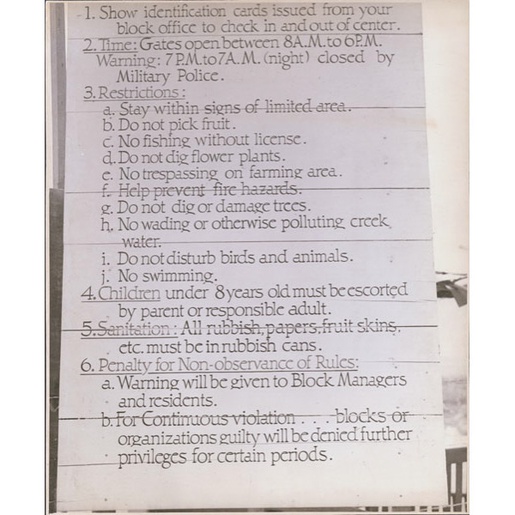 1. Show identification cards issued from your
block office to check in and out of center.
2. Time: Gates open between 8A.M. to 6P.M.
Warning: 7P.M. to 7A.M. (night) closed by
Military Police.
3. Restrictions:
a. Stay within signs of limited area.
b. Do not pick fruit.
c. No fishing without license.
d. Do not dig flower plants.
e. No trespassing on farming area.
f. Help prevent fire hazards.
g. Do not dig or damage trees.
h. No wading or otherwise polluting creek
water.
i. Do not disturb birds and animals.
j. No swimming.
4. Children under 8 years old must be escorted
by parent or responsible adult.
5. Sanitation: All rubbish, papers, fruit skins,
etc. must be in rubbish cans.
6. Penalty for Non-observance of Rules:
a. Warning will be given to Block Managers
and residents.
b. For Continuous violation . . . blocks or
organizations guilty will be denied further
privileges for certain periods.